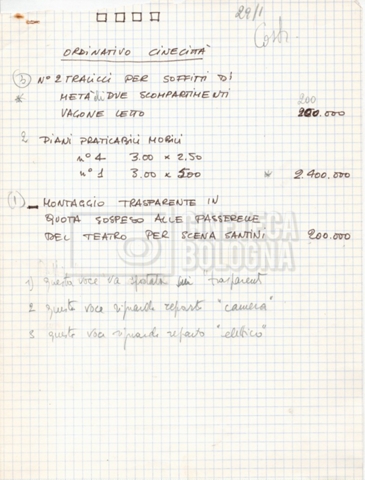 29/1
Costi
ORDINATIVO CINECITTÀ
③ N° 2 TRALICCI PER SOFFITTI DI
* METÀ di DUE SCOMPARTIMENTI 200
VAGONE LETTO 200.000
2 PIANI PRATICABILI MOBILI
n° 4 3.00 x 2.50
n° 1 3.00 x 500 * 2.400.000
① - MONTAGGIO TRASPARENTE IN
QUOTA SOSPESO ALLE PASSERELLE
DEL TEATRO PER SCENA SANTINI 200.000
CINETECA
BOLOGNA
1) questa voce va spostata sui trasparenti
2 questa voce riguarda reparto "camera"
3 questa voce riguarda reparto "elettrico"